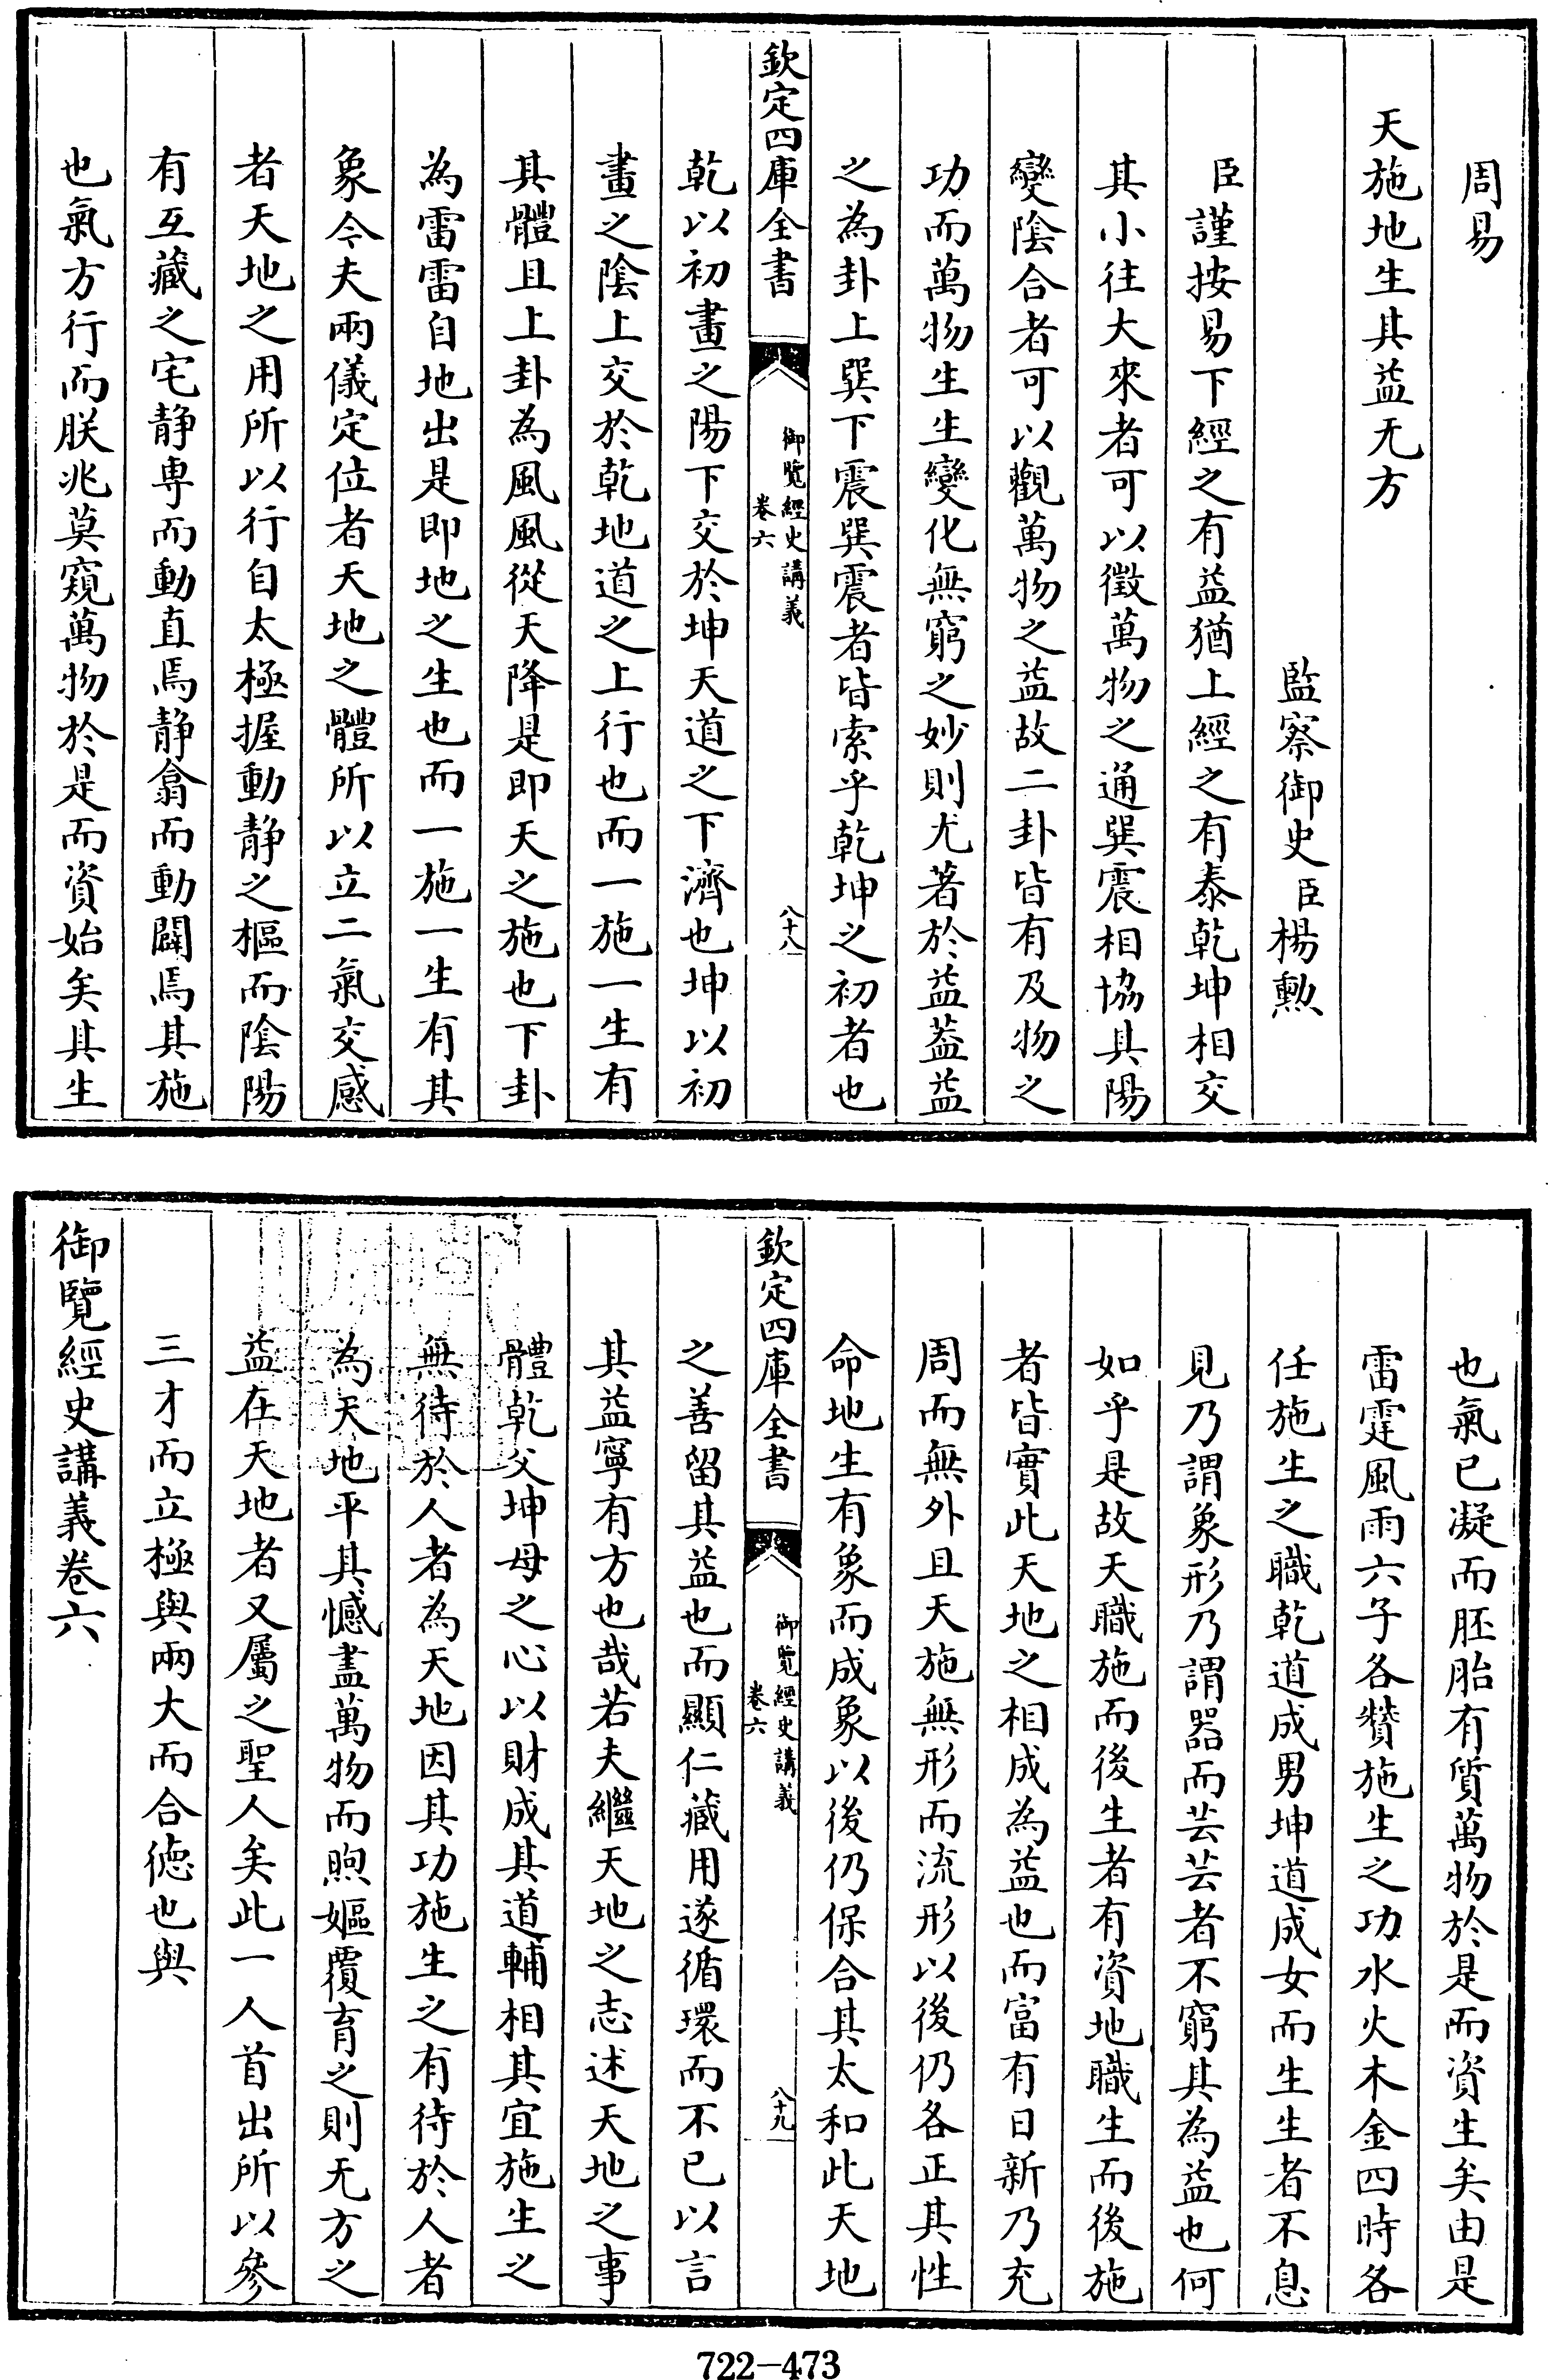 周易
天施地生其益无方
監察御史臣楊勲
臣謹按易下經之有益猶上經之有泰乾坤相交
其小往大來者可以徵萬物之通巽震相協其陽
變陰合者可以觀萬物之益故二卦皆有及物之
功而萬物生生變化無窮之妙則尤著於益葢益
之為卦上巽下震巽震者皆索乎乾坤之初者也
欽定四庫全書
御覽經史講義
卷六
八十八
乾以初畫之陽下交於坤天道之下濟也坤以初
畫之陰上交於乾地道之上行也而一施一生有
其體且上卦為風風從天降是即天之施也下卦
為雷雷自地出是即地之生也而一施一生有其
象今夫兩儀定位者天地之體所以立二氣交感
者天地之用所以行自太極握動静之樞而陰陽
有互藏之宅静専而動直焉静翕而動闢焉其施
也氣方行而朕兆莫窺萬物於是而資始矣其生
也氣已凝而胚胎有質萬物於是而資生矣由是
雷霆風雨六子各贊施生之功水火木金四時各
任施生之職乾道成男坤道成女而生生者不息
見乃謂象形乃謂器而芸芸者不窮其為益也何
如乎是故天職施而後生者有資地職生而後施
者皆實此天地之相成為益也而富有日新乃充
周而無外且天施無形而流形以後仍各正其性
命地生有象而成象以後仍保合其太和此天地
欽定四庫全書
御覽經史講義
卷六
八十九
之善留其益也而顯仁藏用遂循環而不已以言
其益寧有方也哉若夫繼天地之志述天地之事
體乾父坤母之心以財成其道輔相其宜施生之
無待於人者為天地因其功施生之有待於人者
為天地平其憾盡萬物而煦嫗覆育之則无方之
益在天地者又屬之聖人矣此一人首出所以參
三才而立極與兩大而合徳也與
御覽經史講義卷六
722-473